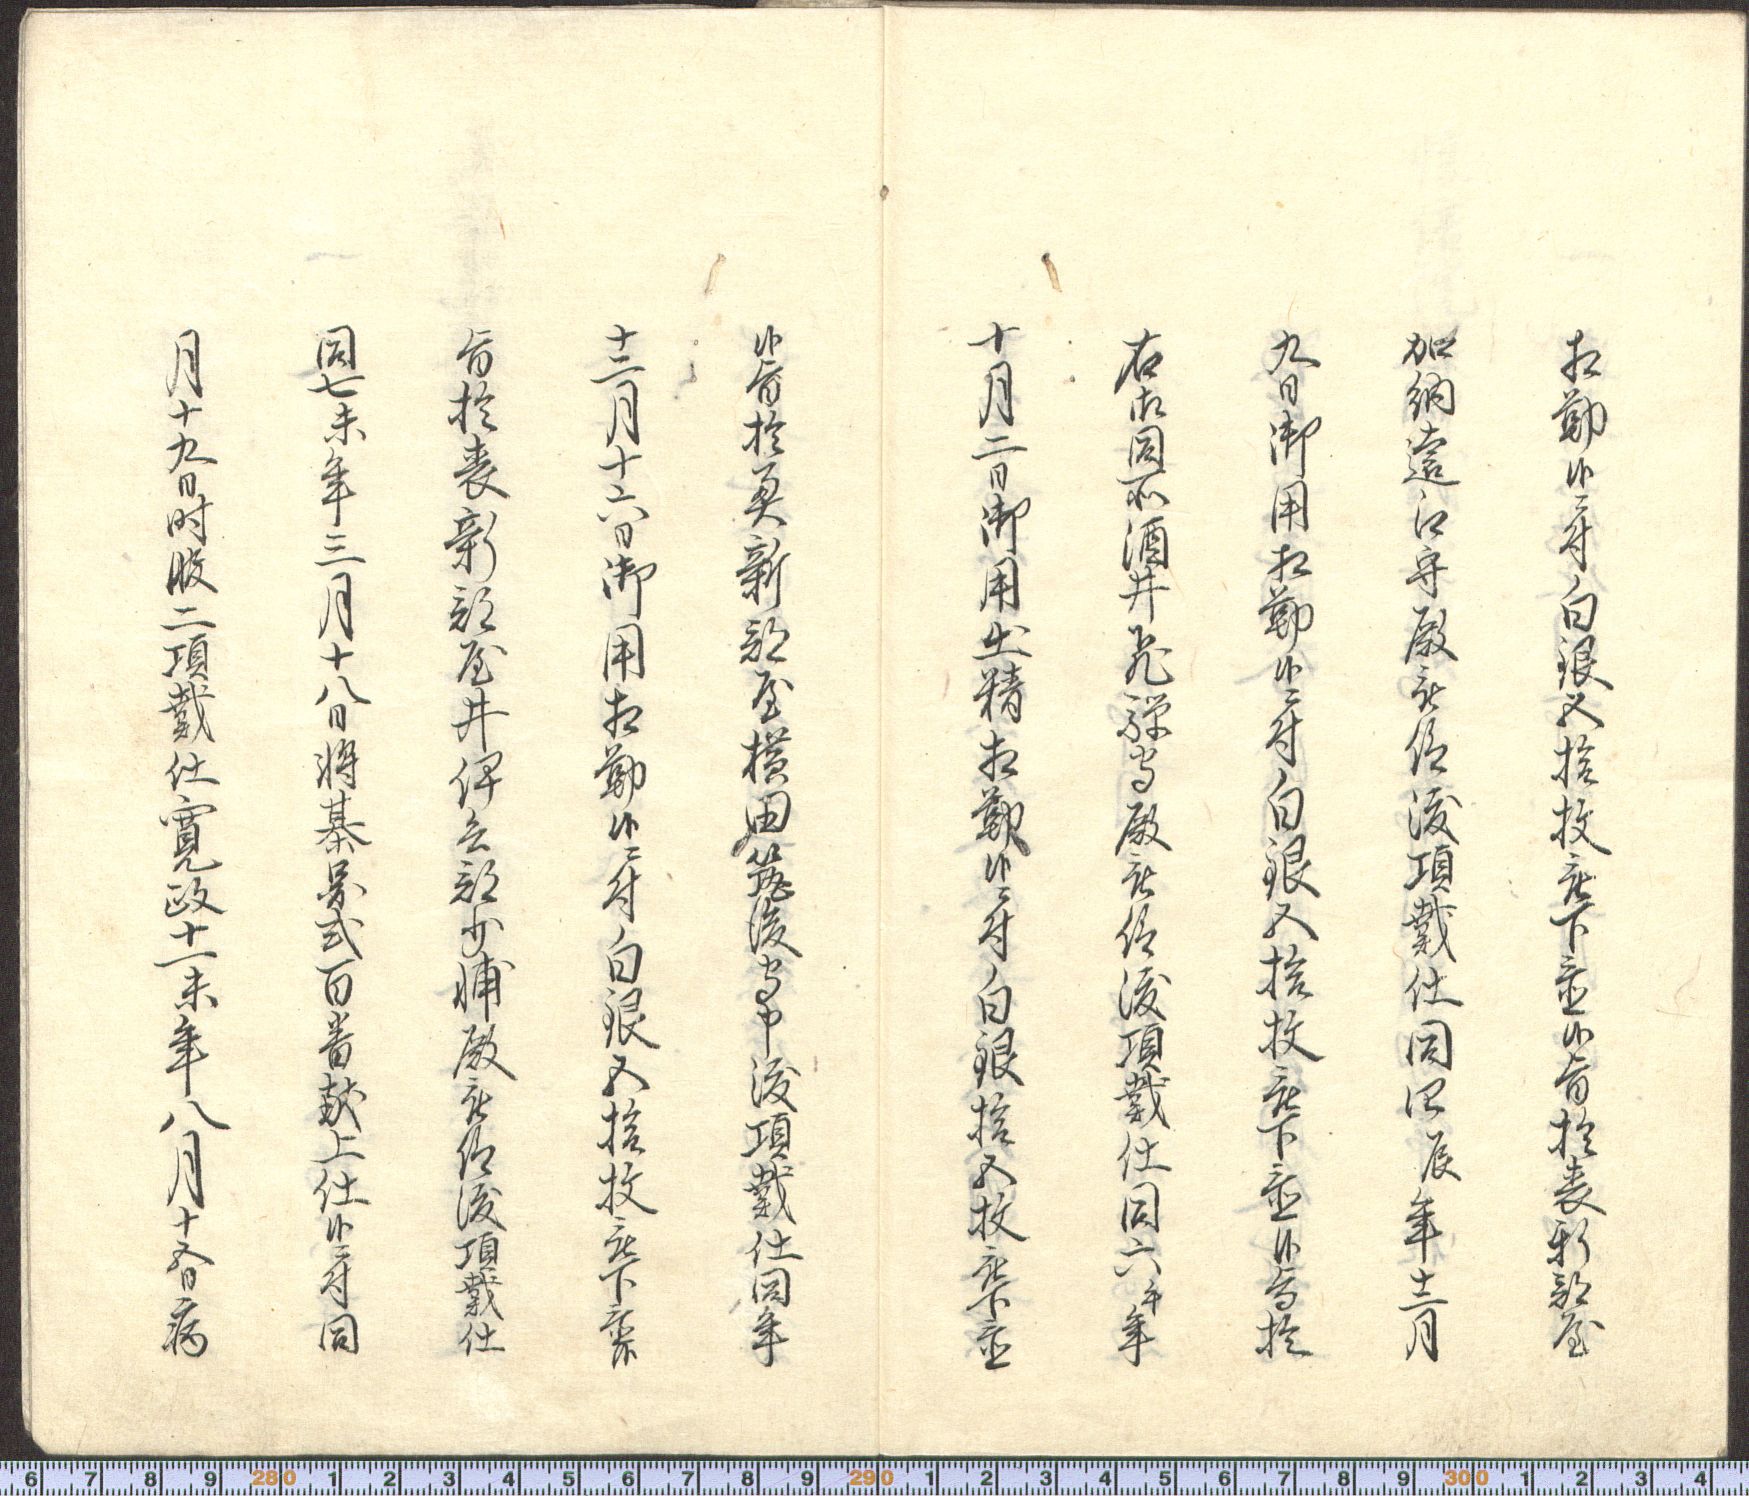 相勤候ニ付白銀五拾枚被下置候旨於表新部屋
加納遠江守殿被仰渡頂戴仕同四辰年十二月
九日御用相勤候ニ付白銀五拾枚被下置候旨於
右御同所酒井飛騨守殿被仰渡頂戴仕同六午年
十月二日御用出精相勤候ニ付白銀拾五枚被下置
候旨於奥新部屋横田筑後守申渡頂戴仕同年
十二月十六日御用相勤候ニ付白銀五拾枚被下置候
旨於表新部屋井伊兵部少輔殿被仰渡頂戴仕
同七未年三月十八日将棊図式百番献上仕候ニ付同
月十九日時服二頂戴仕寛政十一未年八月十五日病